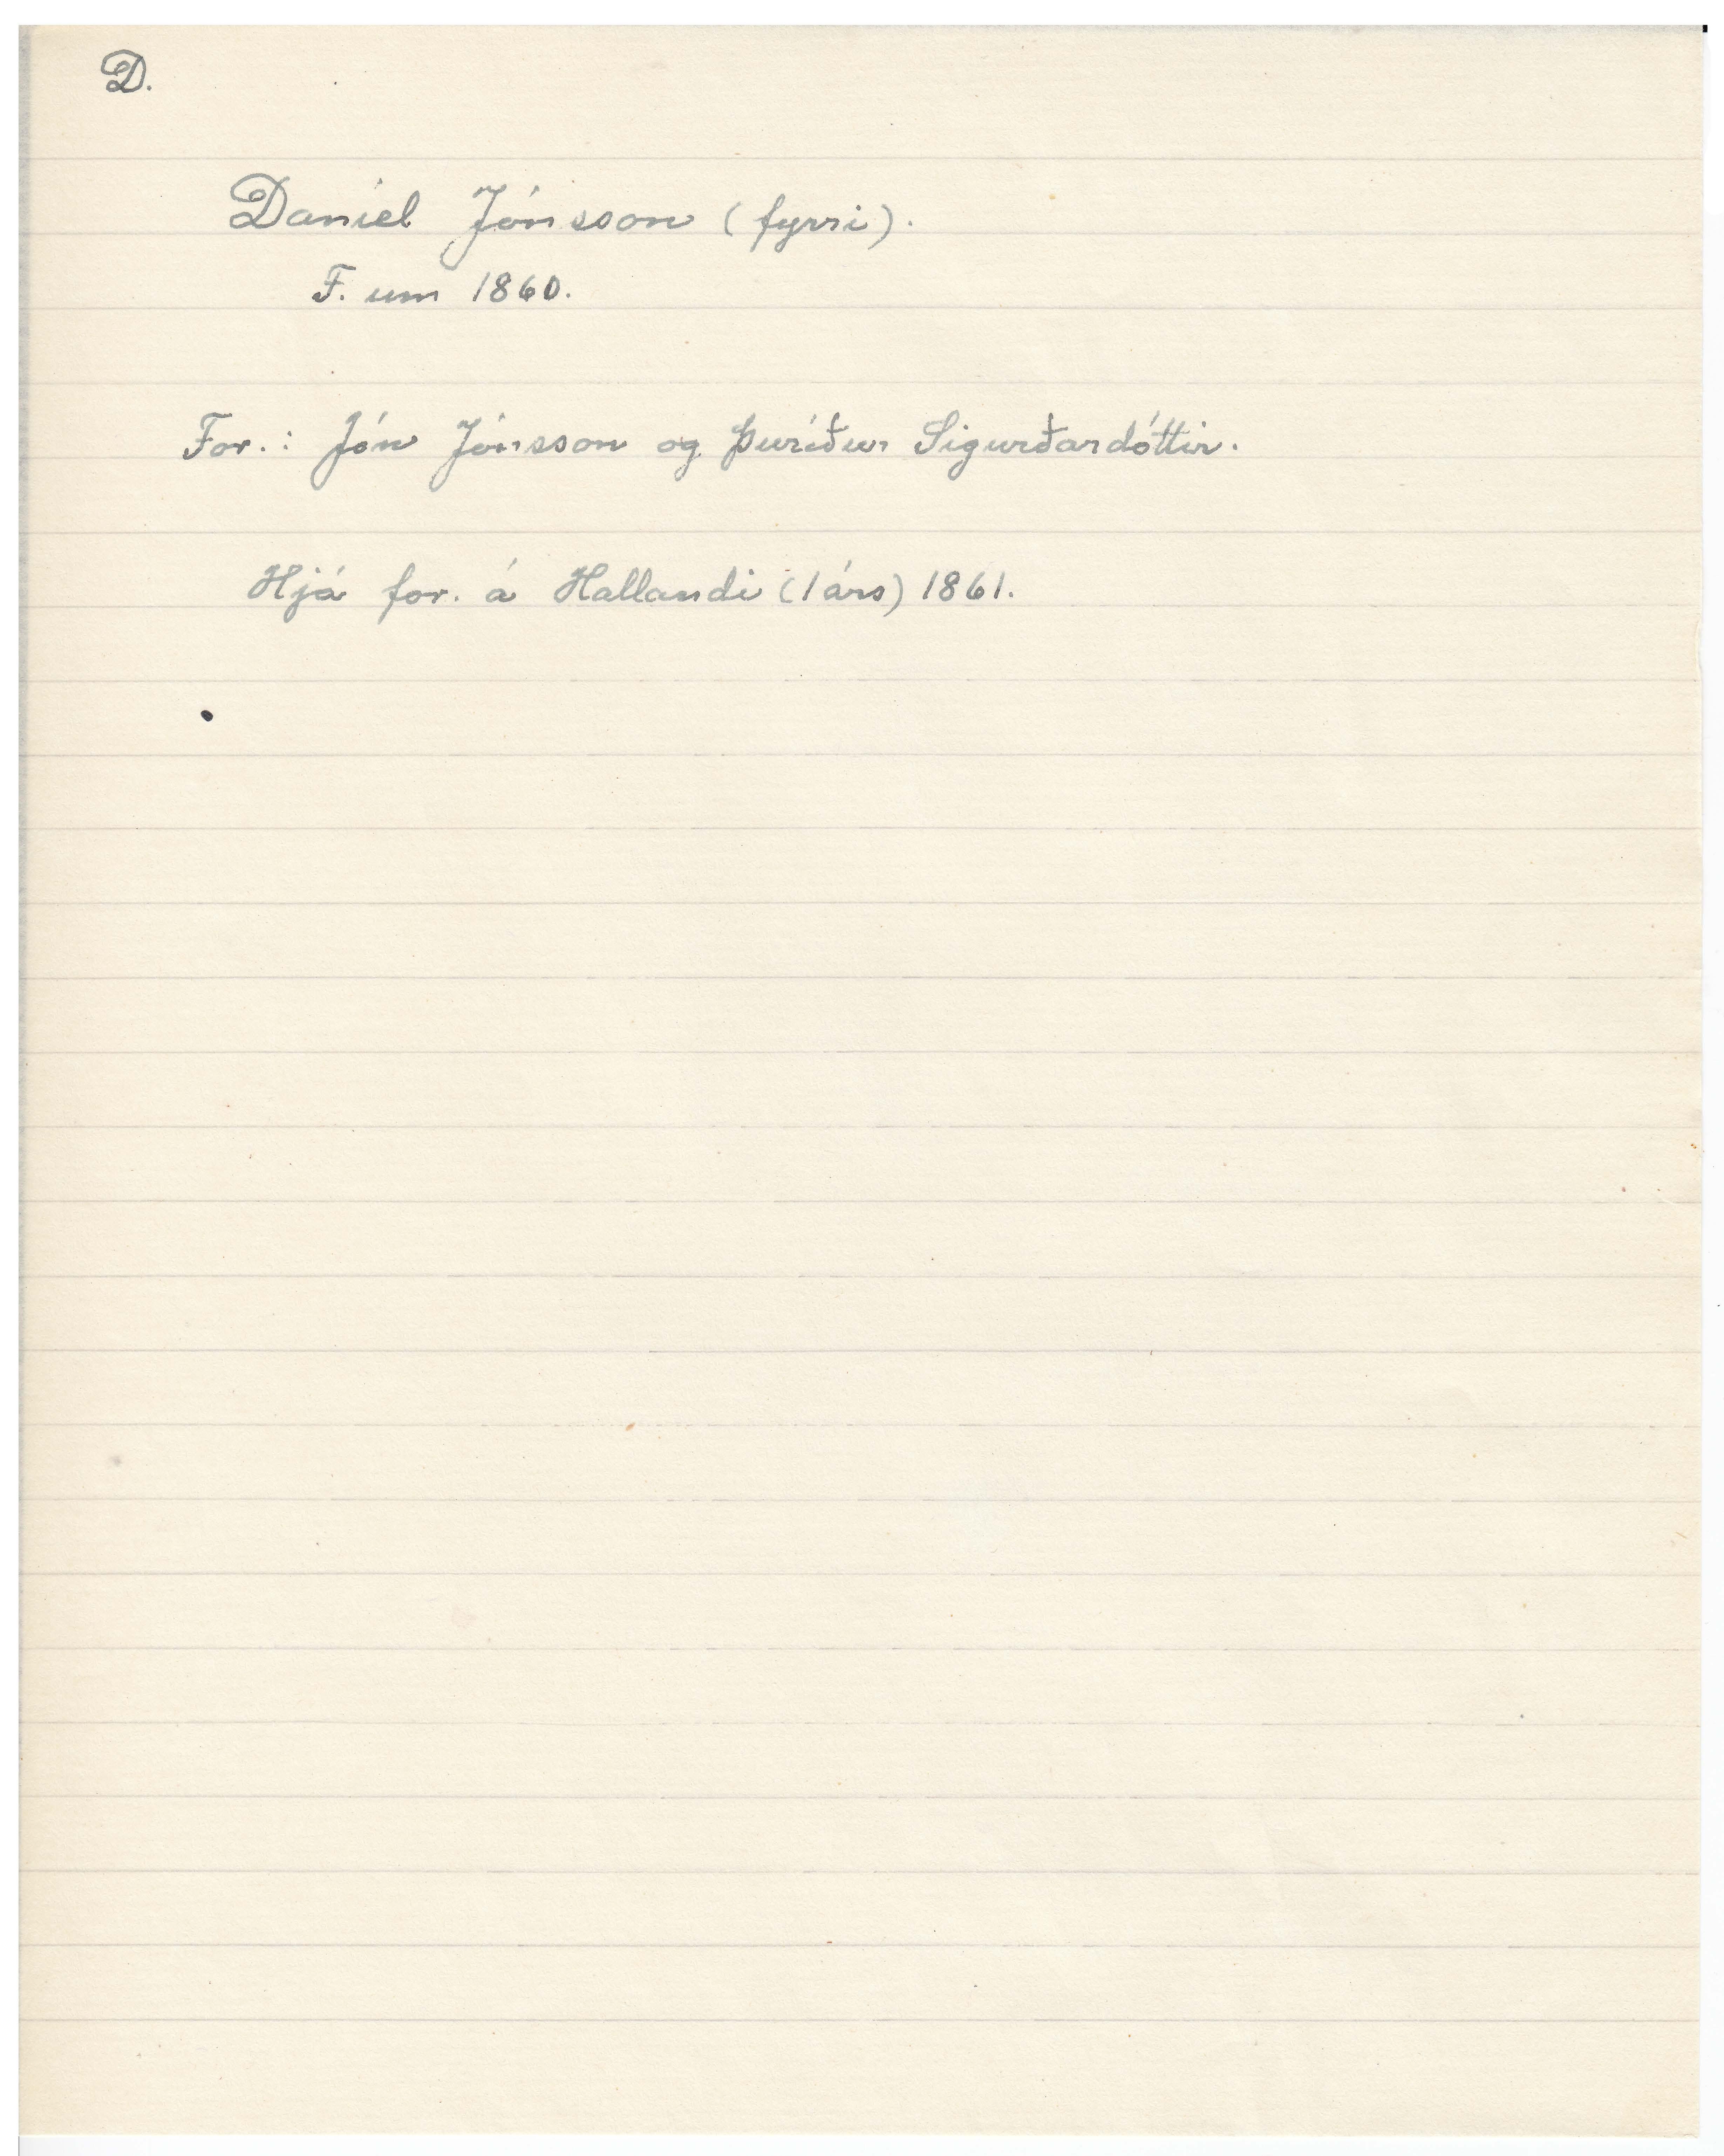 D.
Daníel Jónsson (fyrri).
F. um 1860.
For.: Jón Jónsson og Þuríður Sigurðardóttir.
Hjá for. á Hallandi (1 árs) 1861.